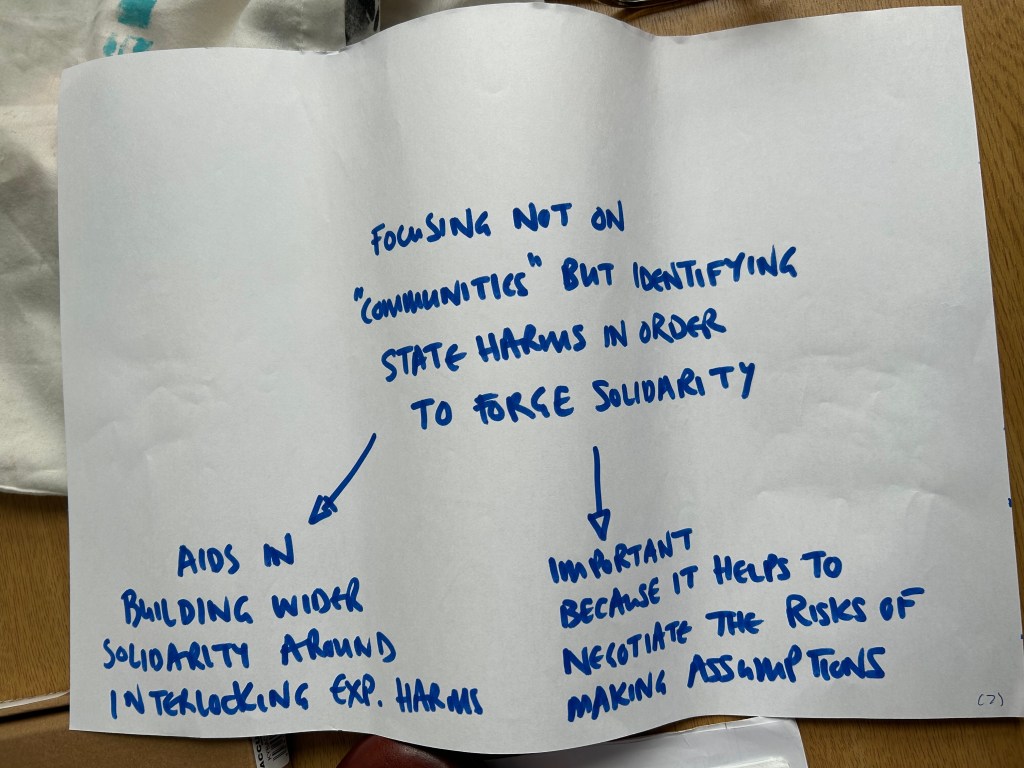 FOCUSING NOT ON
"COMMUNITIES" BUT IDENTIFYING
STATE HARMS IN ORDER
TO FORGE SOLIDARITY
AIDS IN
BUILDING WIDER
SOLIDARITY AROUND
INTERLOCKING EXP. HARMS
IMPORTANT
BECAUSE IT HELPS TO
NEGOTIATE THE RISKS OF
MAKING ASSUMPTIONS